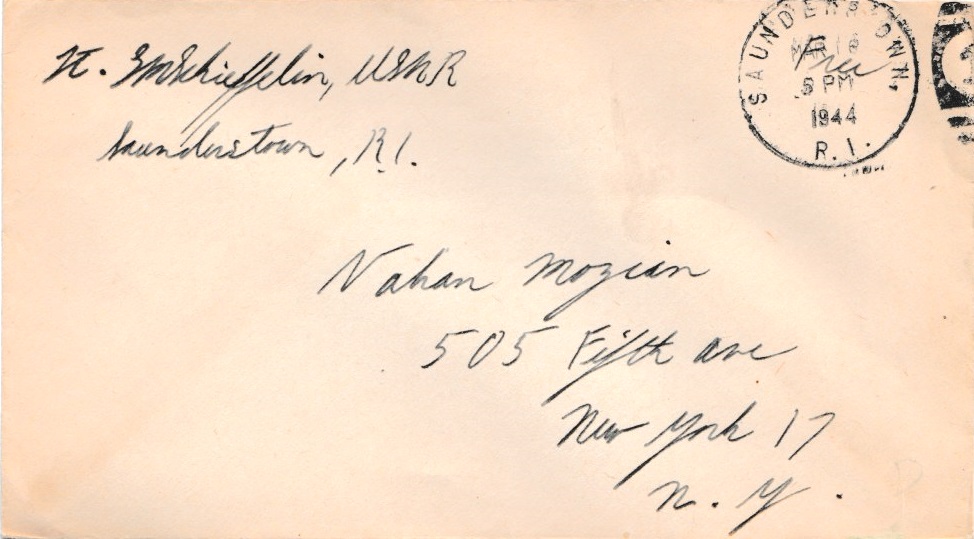 Lt. GMSchieffelin, USNR
Saunderstown, R.I.
SAUNDERSTOWN,
MAR 16
Free
PM
1944
R.I.
Vahan Mozian
505 Fifth ave
New York 17
N. Y.